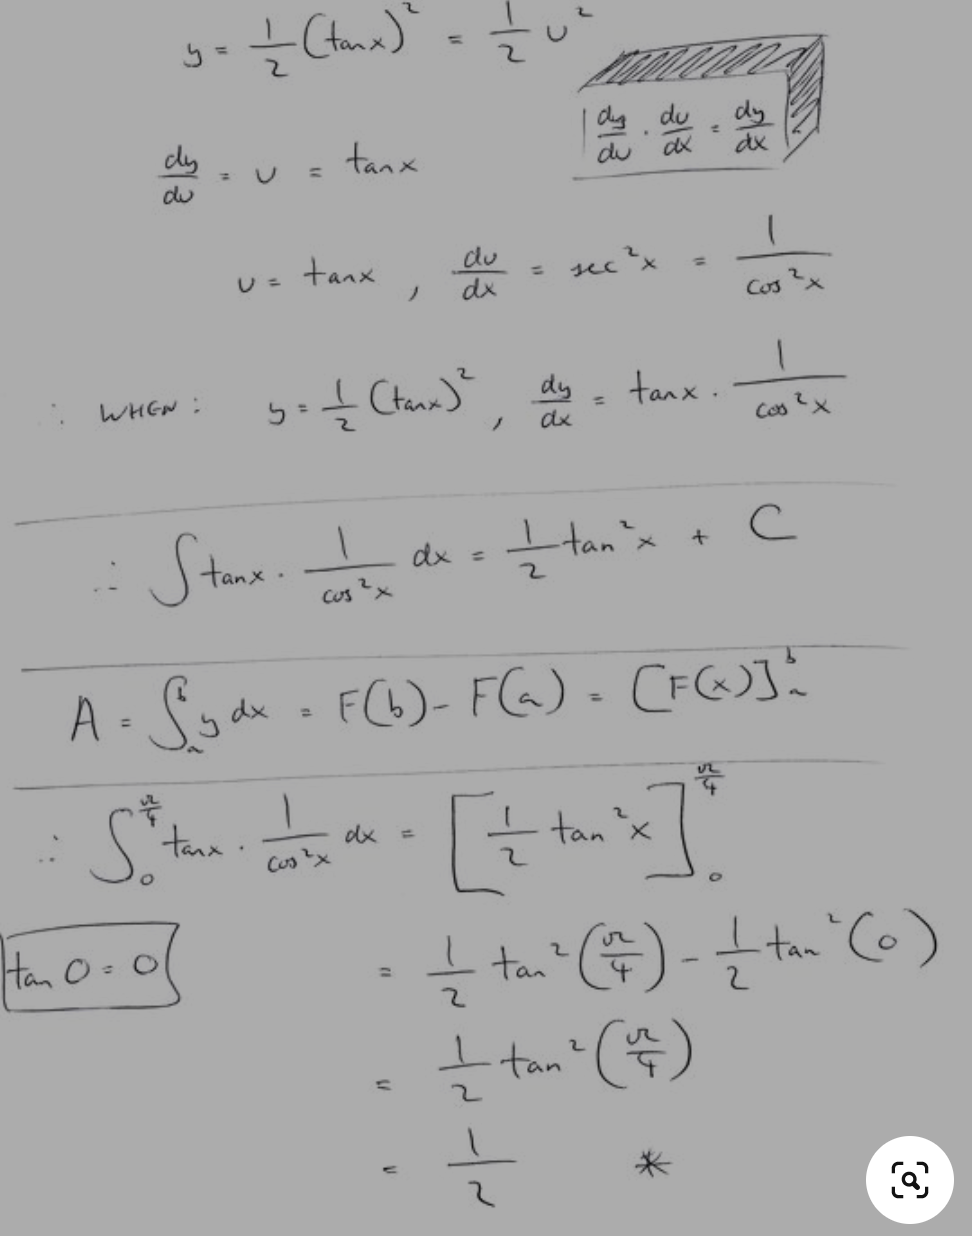 y = 1/2 (tanx)² = 1/2 u²
dy/du · du/dx = dy/dx
dy/du = u = tanx
u = tanx , du/dx = sec²x = 1/cos²x
∴ WHEN: y = 1/2 (tanx)² , dy/dx = tanx · 1/cos²x
∴ ∫ tanx · 1/cos²x dx = 1/2 tan²x + C
A = ∫ₐᵇ y dx = F(b) - F(a) = [F(x)]ₐᵇ
∴ ∫₀^(π/4) tanx · 1/cos²x dx = [1/2 tan²x]₀^(π/4)
tan 0 = 0
= 1/2 tan²(π/4) - 1/2 tan²(0)
= 1/2 tan²(π/4)
= 1/2 *